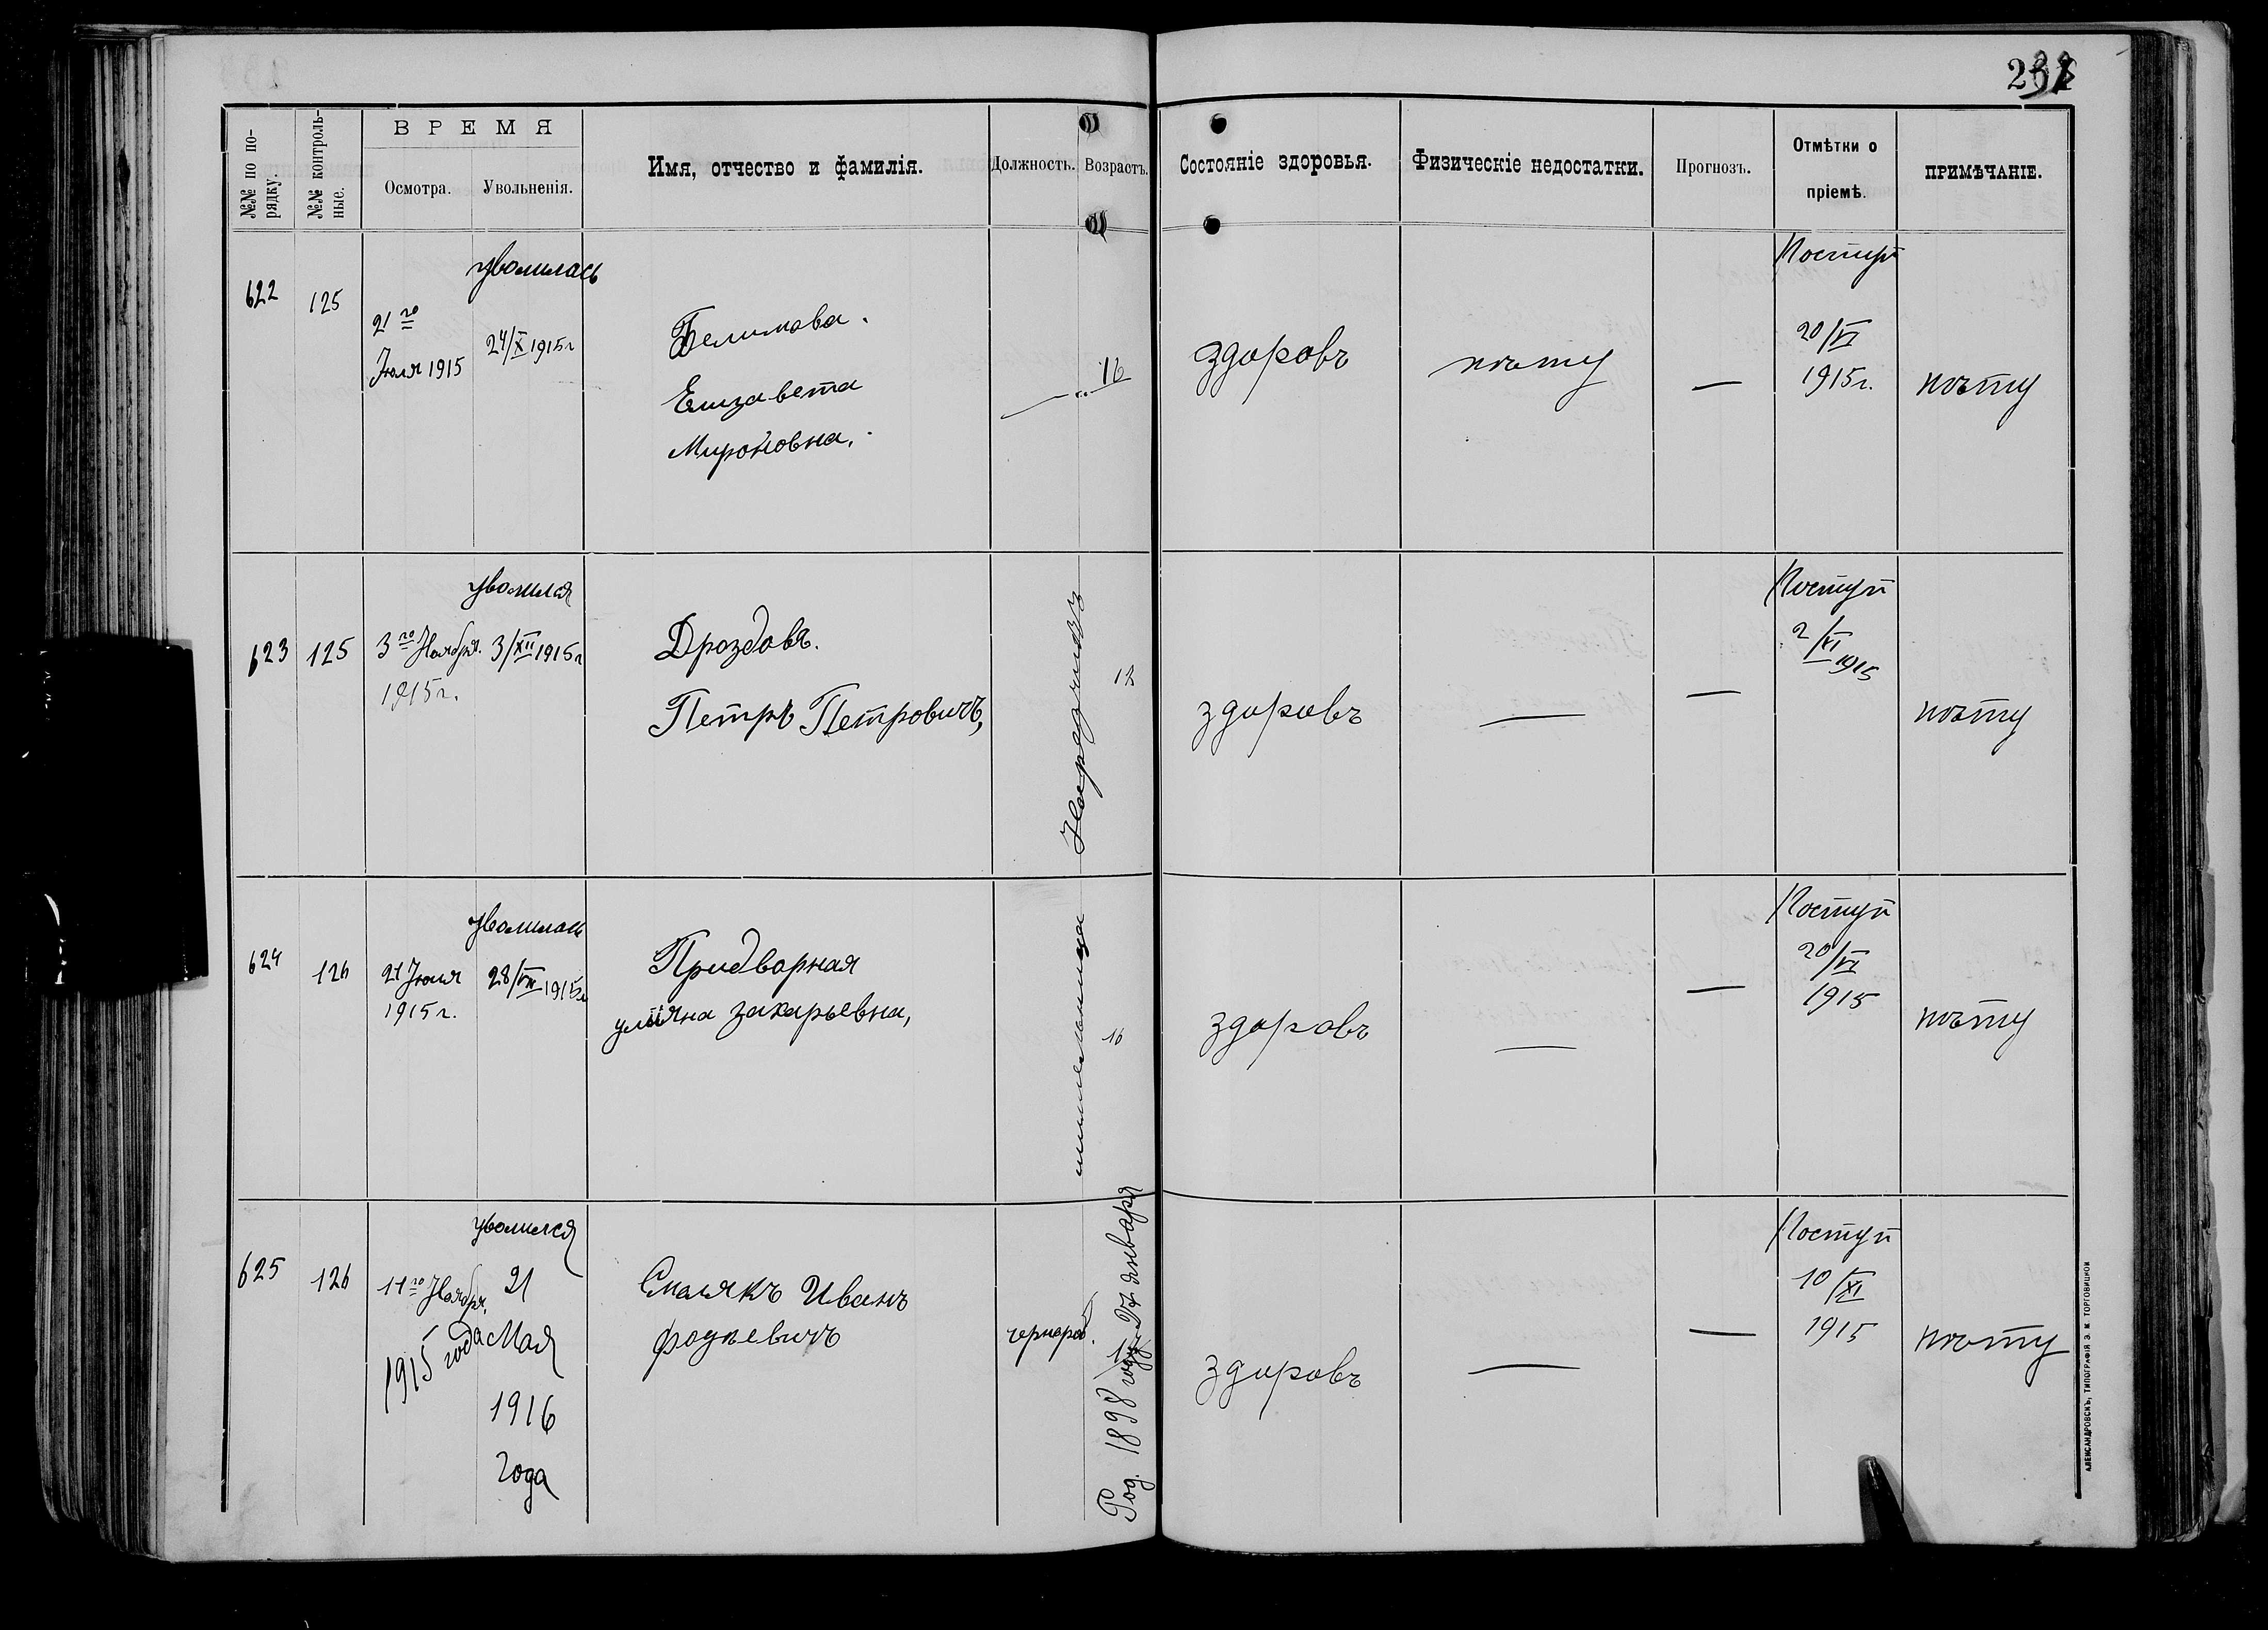 232
№№ по по-
рядку.
№№ контроль-
ные.
ВРЕМЯ
Осмотра.
Увольненія.
Имя, отчество и фамилія.
Должность.
Возрастъ.
Состояніе здоровья.
Физическіе недостатки.
Прогнозъ.
Отмѣтки о
пріемѣ.
ПРИМѢЧАНІЕ.
622
125
21 го
Июля 1915
уволилась
24/X 1915 г
Белимова.
Елизавета
Мироновна.
16
здоровъ
нѣту
—
Поступ
20/VI
1915 г.
нѣту
623
125
3 го Ноября.
1915 г.
уволился
3/XII 1915 г
Дроздовъ.
Петръ Петровичъ,
12
здоровъ
—
—
Поступ
2/XI 1915
нѣту
624
126
21 Июля
1915 г.
уволилась
28/VII 1915 г
Придворная
улияна захарьевна,
шпилельница
16
здоровъ
—
—
Поступ
20/VI
1915
нѣту
625
126
11 го Ноябр.
1915 года
уволился
21
Мая
1916
года
Смалякъ Иванъ
чернораб.
Род. 1898 году 24 января
здоровъ
—
—
Поступ
10/XI
1915
нѣту
АЛЕКСАНДРОВСКЪ, ТИПОГРАФІЯ Э. М. ТОРГОВИЦКОЙ